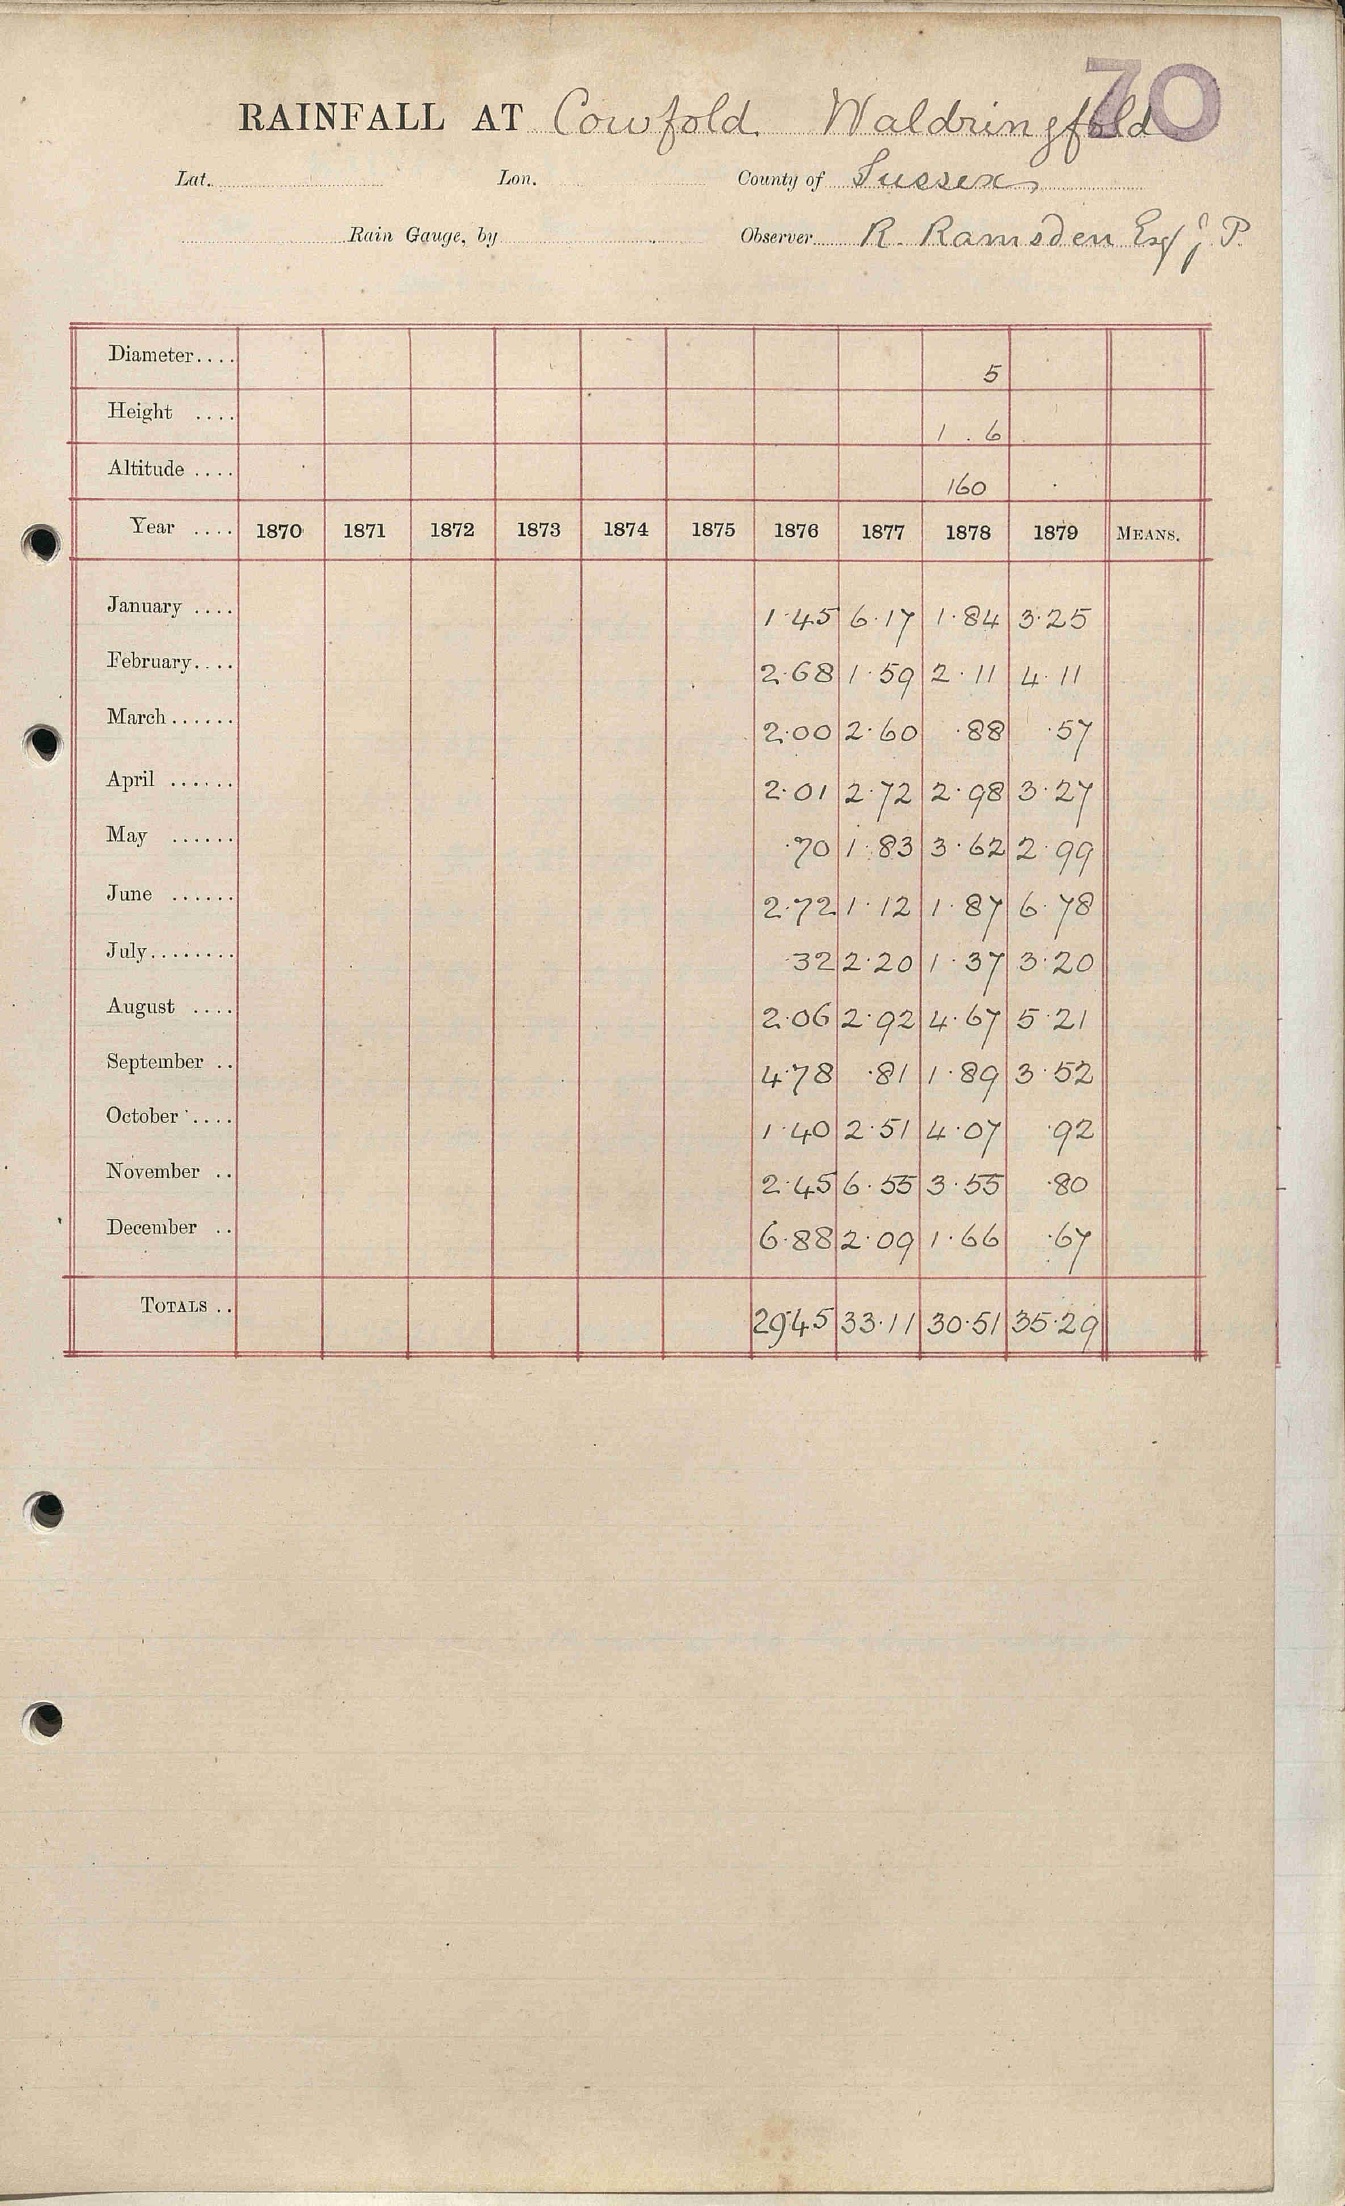 70
RAINFALL AT Cowfold. Waldringfold
Lat. Lon. County of Sussex
Rain Gauge, by Observer R. Ramsden Esq J. P.
Diameter.... 5
Height .... 1 . 6
Altitude .... 160
Year .... 1870 1871 1872 1873 1874 1875 1876 1877 1878 1879 MEANS.
January .... 1·45 6·17 1·84 3·25
February.... 2·68 1·59 2·11 4·11
March...... 2·00 2·60 ·88 ·57
April ...... 2·01 2·72 2·98 3·27
May ...... ·70 1·83 3·62 2·99
June ...... 2·72 1·12 1·87 6·78
July........ ·32 2·20 1·37 3·20
August .... 2·06 2·92 4·67 5·21
September .. 4·78 ·81 1·89 3·52
October .... 1·40 2·51 4·07 ·92
November .. 2·45 6·55 3·55 ·80
December .. 6·88 2·09 1·66 ·67
TOTALS .. 29·45 33·11 30·51 35·29